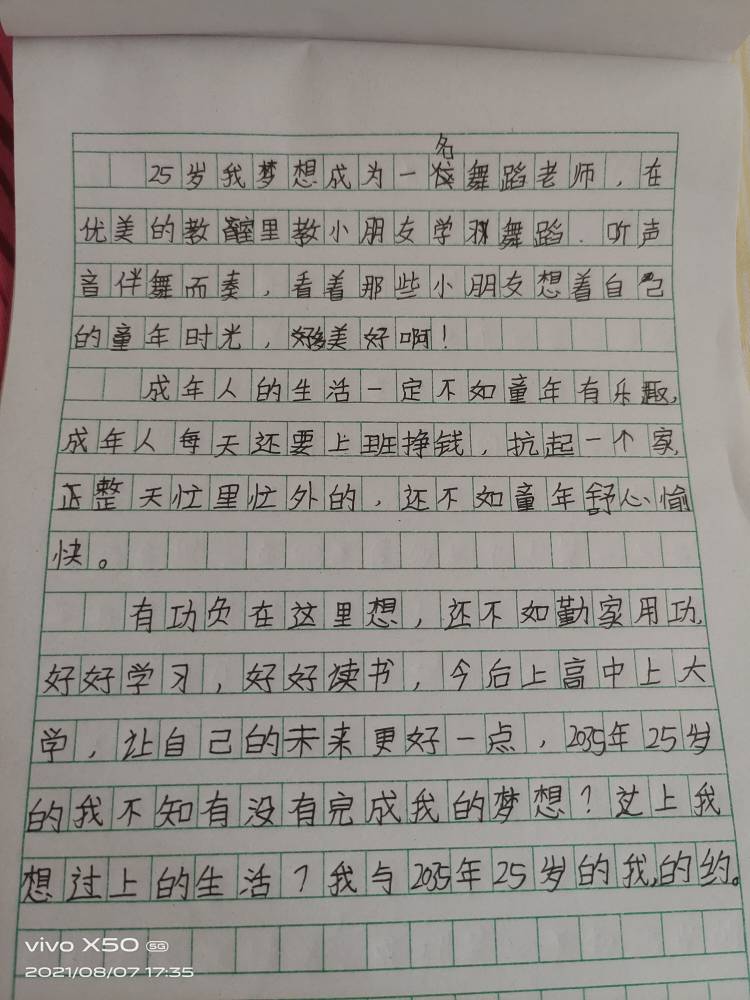 25岁我梦想成为一名舞蹈老师，在
优美的教室里教小朋友学习舞蹈．听声
音伴舞而奏，看着那些小朋友想着自己
的童年时光，好美好啊！
成年人的生活一定不如童年有乐趣，
成年人每天还要上班挣钱，抗起一个家，
正整天忙里忙外的，还不如童年舒心愉
快。
有功负在这里想，还不如勤家用功，
好好学习，好好读书，今后上高中上大
学，让自己的未来更好一点，2035年25岁
的我不知有没有完成我的梦想？过上我
想过上的生活？我与2035年25岁的我，的约。
vivo X50 5G
2021/08/07 17:35